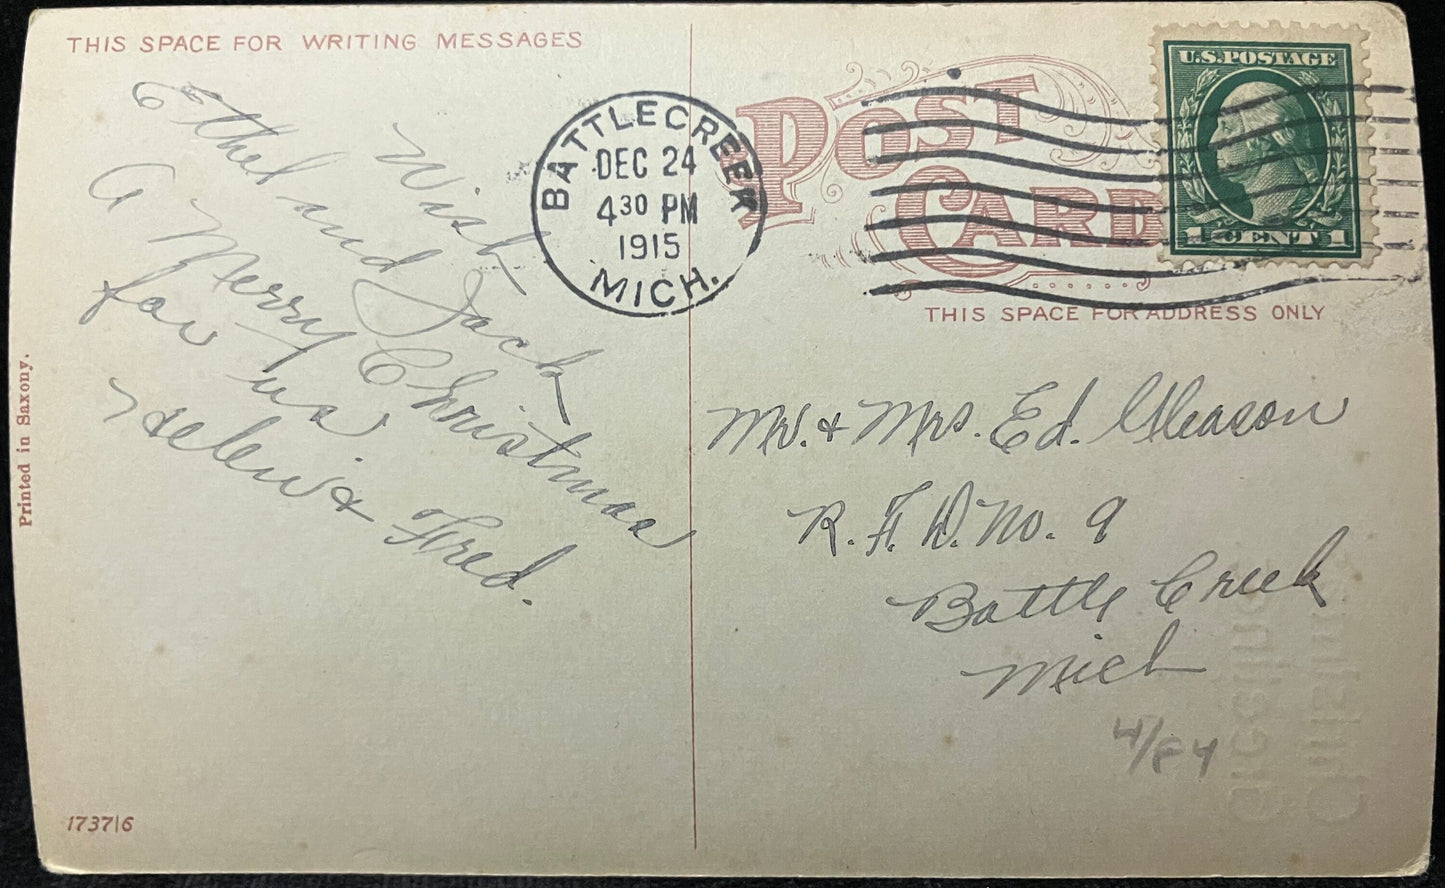 THIS SPACE FOR WRITING MESSAGES
Wish
Ethel and Jack
A Merry Christmas
for us.
Helen & Fred.
Printed in Saxony.
17371|6
BATTLE CREEK
DEC 24
4 30 PM
1915
MICH.
POST
CARD
U.S. POSTAGE
1 CENT 1
THIS SPACE FOR ADDRESS ONLY
Mr. & Mrs. Ed. Gleason
R. F. D. No. 9
Battle Creek
Mich
Christmas
Greeting